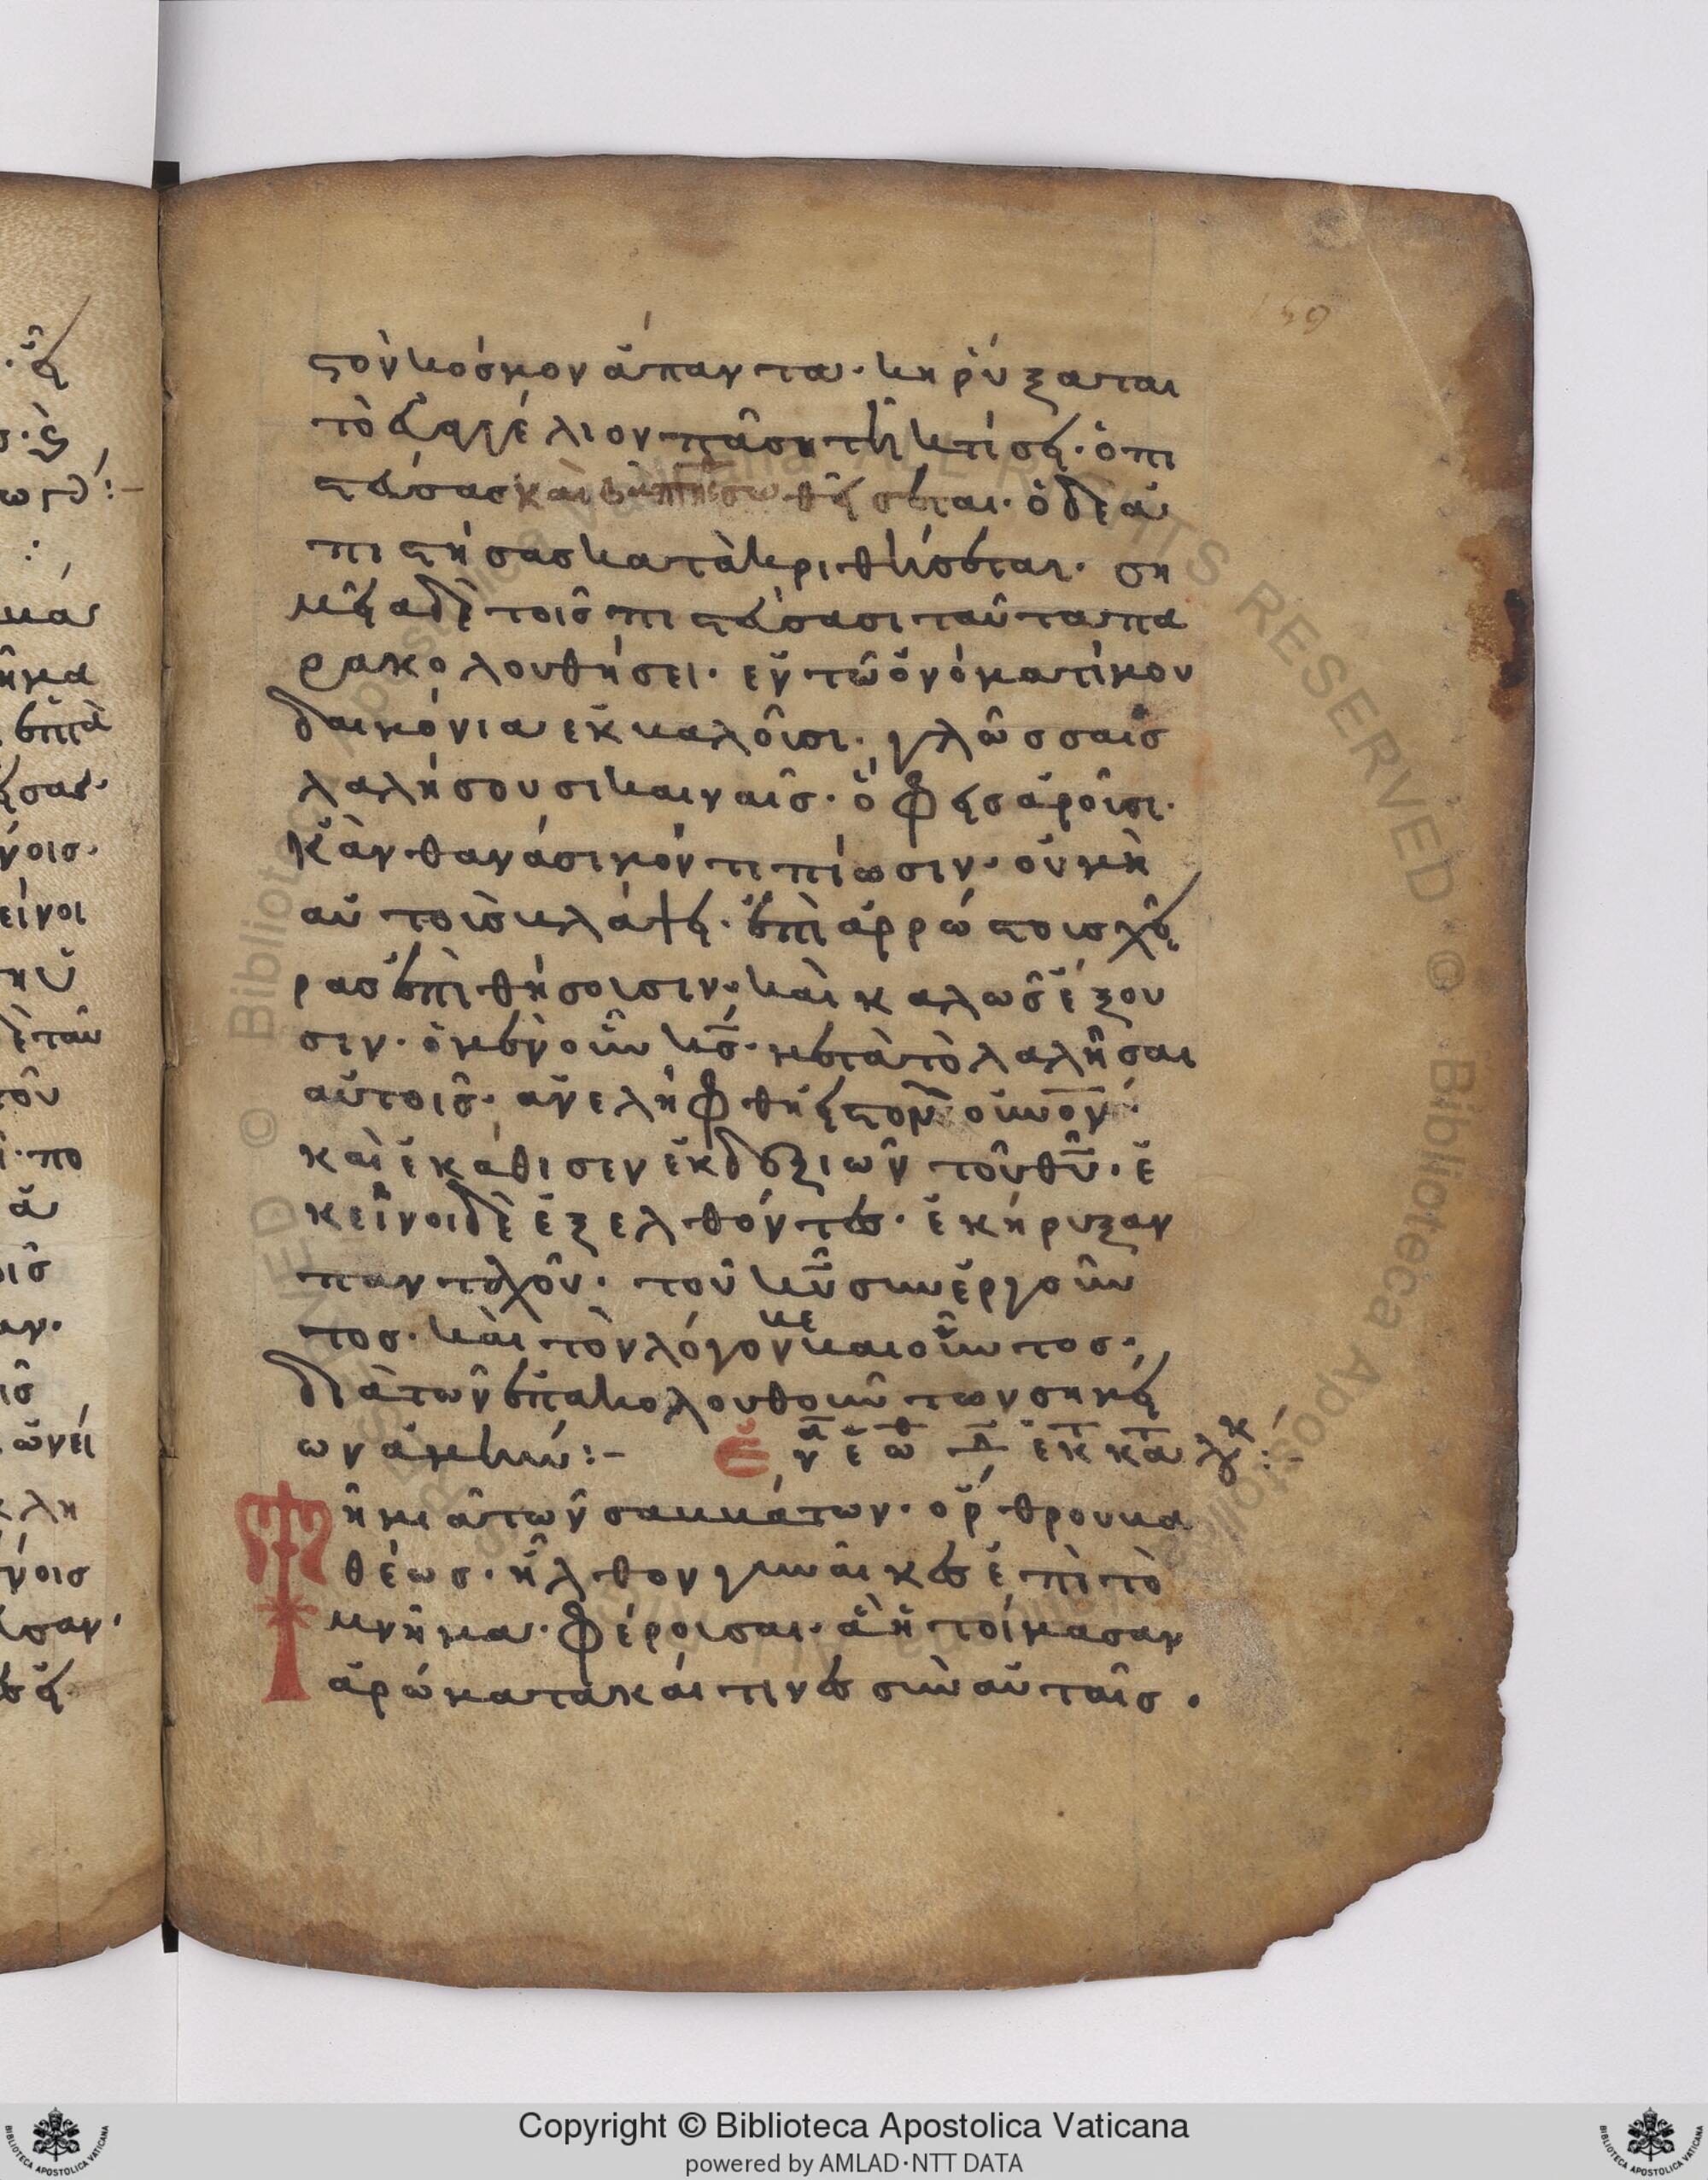 στὸν κόσμον ἅπαντα· κηρύξαται
τὸ εὐαγγέλιον πάση τῆ κτίσει· ὁ πι
στεύσας καὶ βαπτισθεὶς σωθήσεται· ὁ δὲ ἀ
πιστήσας κατὰκριθήσεται· ση
μεῖα δὲ τοῖς πιστεύσασι ταῦτα πα
ρακολουθήσει· ἐν τῶ ὀνόματί μου
δαιμόνια ἐκβαλοῦσι· γλώσσαις
λαλήσουσι καιναῖς· ὄφεις ἀροῦσι·
κἂν θανάσιμόν τι πίωσιν· οὐ μὴ
αὐτοὺς βλάψει· ἐπὶ ἀρρώστους χεῖ
ρας ἐπιθήσουσιν· καὶ καλῶς ἕξου
σιν· ὁ μὲν οὖν κ̅ς̅· μετὰ τὸ λαλῆσαι
αὐτοῖς· ἀνελήφθη εἰς τὸν οὐνο̅ν̅·
καὶ ἐκάθισεν ἐκ δεξιῶν τοῦ θ̅υ̅· ἐ
κεῖνοι δὲ ἐξελθόντες· ἐκήρυξαν
πανταχοῦ· τοῦ κ̅υ̅ συνεργοῦν
τος· καὶ τὸν λόγον βεβαιοῦντος·
διὰ τῶν ἐπακολουθούντων σημεί
ων ἀμήν:-
Τῆ μιᾶ τῶν σαββάτων· ὄρθρου βα
θέως· ἦλθον γυναῖκες ἐπὶ τὸ
μνῆμα· φέρουσαι· ἃ ἡτοίμασαν
ἀρώματα καί τινες σὺν αὐταῖς·
Copyright © Biblioteca Apostolica Vaticana
powered by AMLAD·NTT DATA